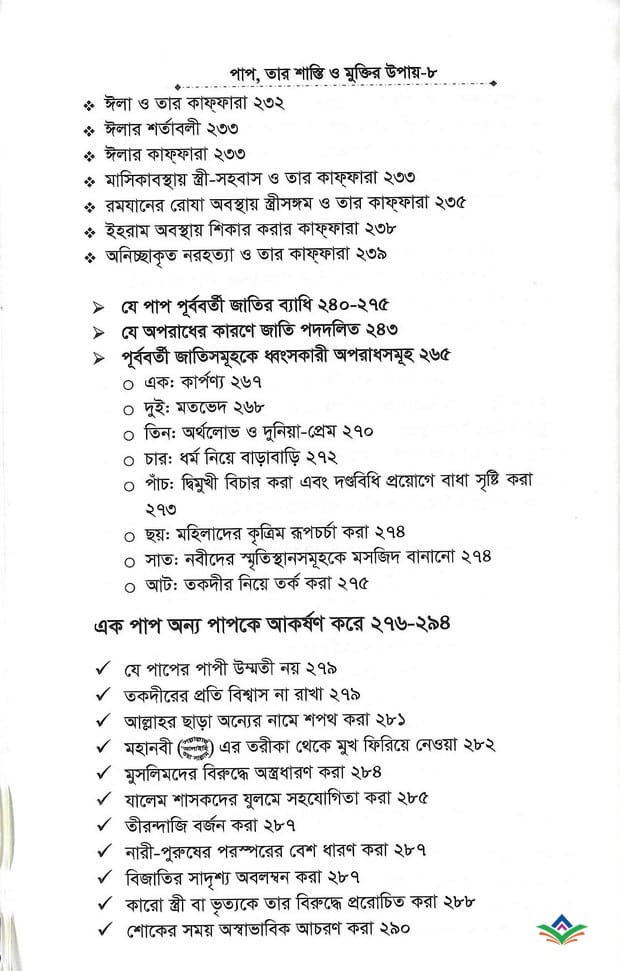 পাপ, তার শাস্তি ও মুক্তির উপায়-৮
❖ ঈলা ও তার কাফ্ফারা ২৩২
❖ ঈলার শর্তাবলী ২৩৩
❖ ঈলার কাফ্ফারা ২৩৩
❖ মাসিকাবস্থায় স্ত্রী-সহবাস ও তার কাফ্ফারা ২৩৩
❖ রমযানের রোযা অবস্থায় স্ত্রীসঙ্গম ও তার কাফ্ফারা ২৩৫
❖ ইহরাম অবস্থায় শিকার করার কাফ্ফারা ২৩৮
❖ অনিচ্ছাকৃত নরহত্যা ও তার কাফ্ফারা ২৩৯
➢ যে পাপ পূর্ববর্তী জাতির ব্যাধি ২৪০-২৭৫
➢ যে অপরাধের কারণে জাতি পদদলিত ২৪৩
➢ পূর্ববর্তী জাতিসমূহকে ধ্বংসকারী অপরাধসমূহ ২৬৫
○ এক: কার্পণ্য ২৬৭
○ দুই: মতভেদ ২৬৮
○ তিন: অর্থলোভ ও দুনিয়া-প্রেম ২৭০
○ চার: ধর্ম নিয়ে বাড়াবাড়ি ২৭২
○ পাঁচ: দ্বিমুখী বিচার করা এবং দণ্ডবিধি প্রয়োগে বাধা সৃষ্টি করা
২৭৩
○ ছয়: মহিলাদের কৃত্রিম রূপচর্চা করা ২৭৪
○ সাত: নবীদের স্মৃতিস্থানসমূহকে মসজিদ বানানো ২৭৪
○ আট: তকদীর নিয়ে তর্ক করা ২৭৫
এক পাপ অন্য পাপকে আকর্ষণ করে ২৭৬-২৯৪
✓ যে পাপের পাপী উম্মতী নয় ২৭৯
✓ তকদীরের প্রতি বিশ্বাস না রাখা ২৭৯
✓ আল্লাহর ছাড়া অন্যের নামে শপথ করা ২৮১
✓ মহানবী () এর তরীকা থেকে মুখ ফিরিয়ে নেওয়া ২৮২
✓ মুসলিমদের বিরুদ্ধে অস্ত্রধারণ করা ২৮৪
✓ যালেম শাসকদের যুলমে সহযোগিতা করা ২৮৫
✓ তীরন্দাজি বর্জন করা ২৮৭
✓ নারী-পুরুষের পরস্পরের বেশ ধারণ করা ২৮৭
✓ বিজাতির সাদৃশ্য অবলম্বন করা ২৮৭
✓ কারো স্ত্রী বা ভৃত্যকে তার বিরুদ্ধে প্ররোচিত করা ২৮৮
✓ শোকের সময় অস্বাভাবিক আচরণ করা ২৯০